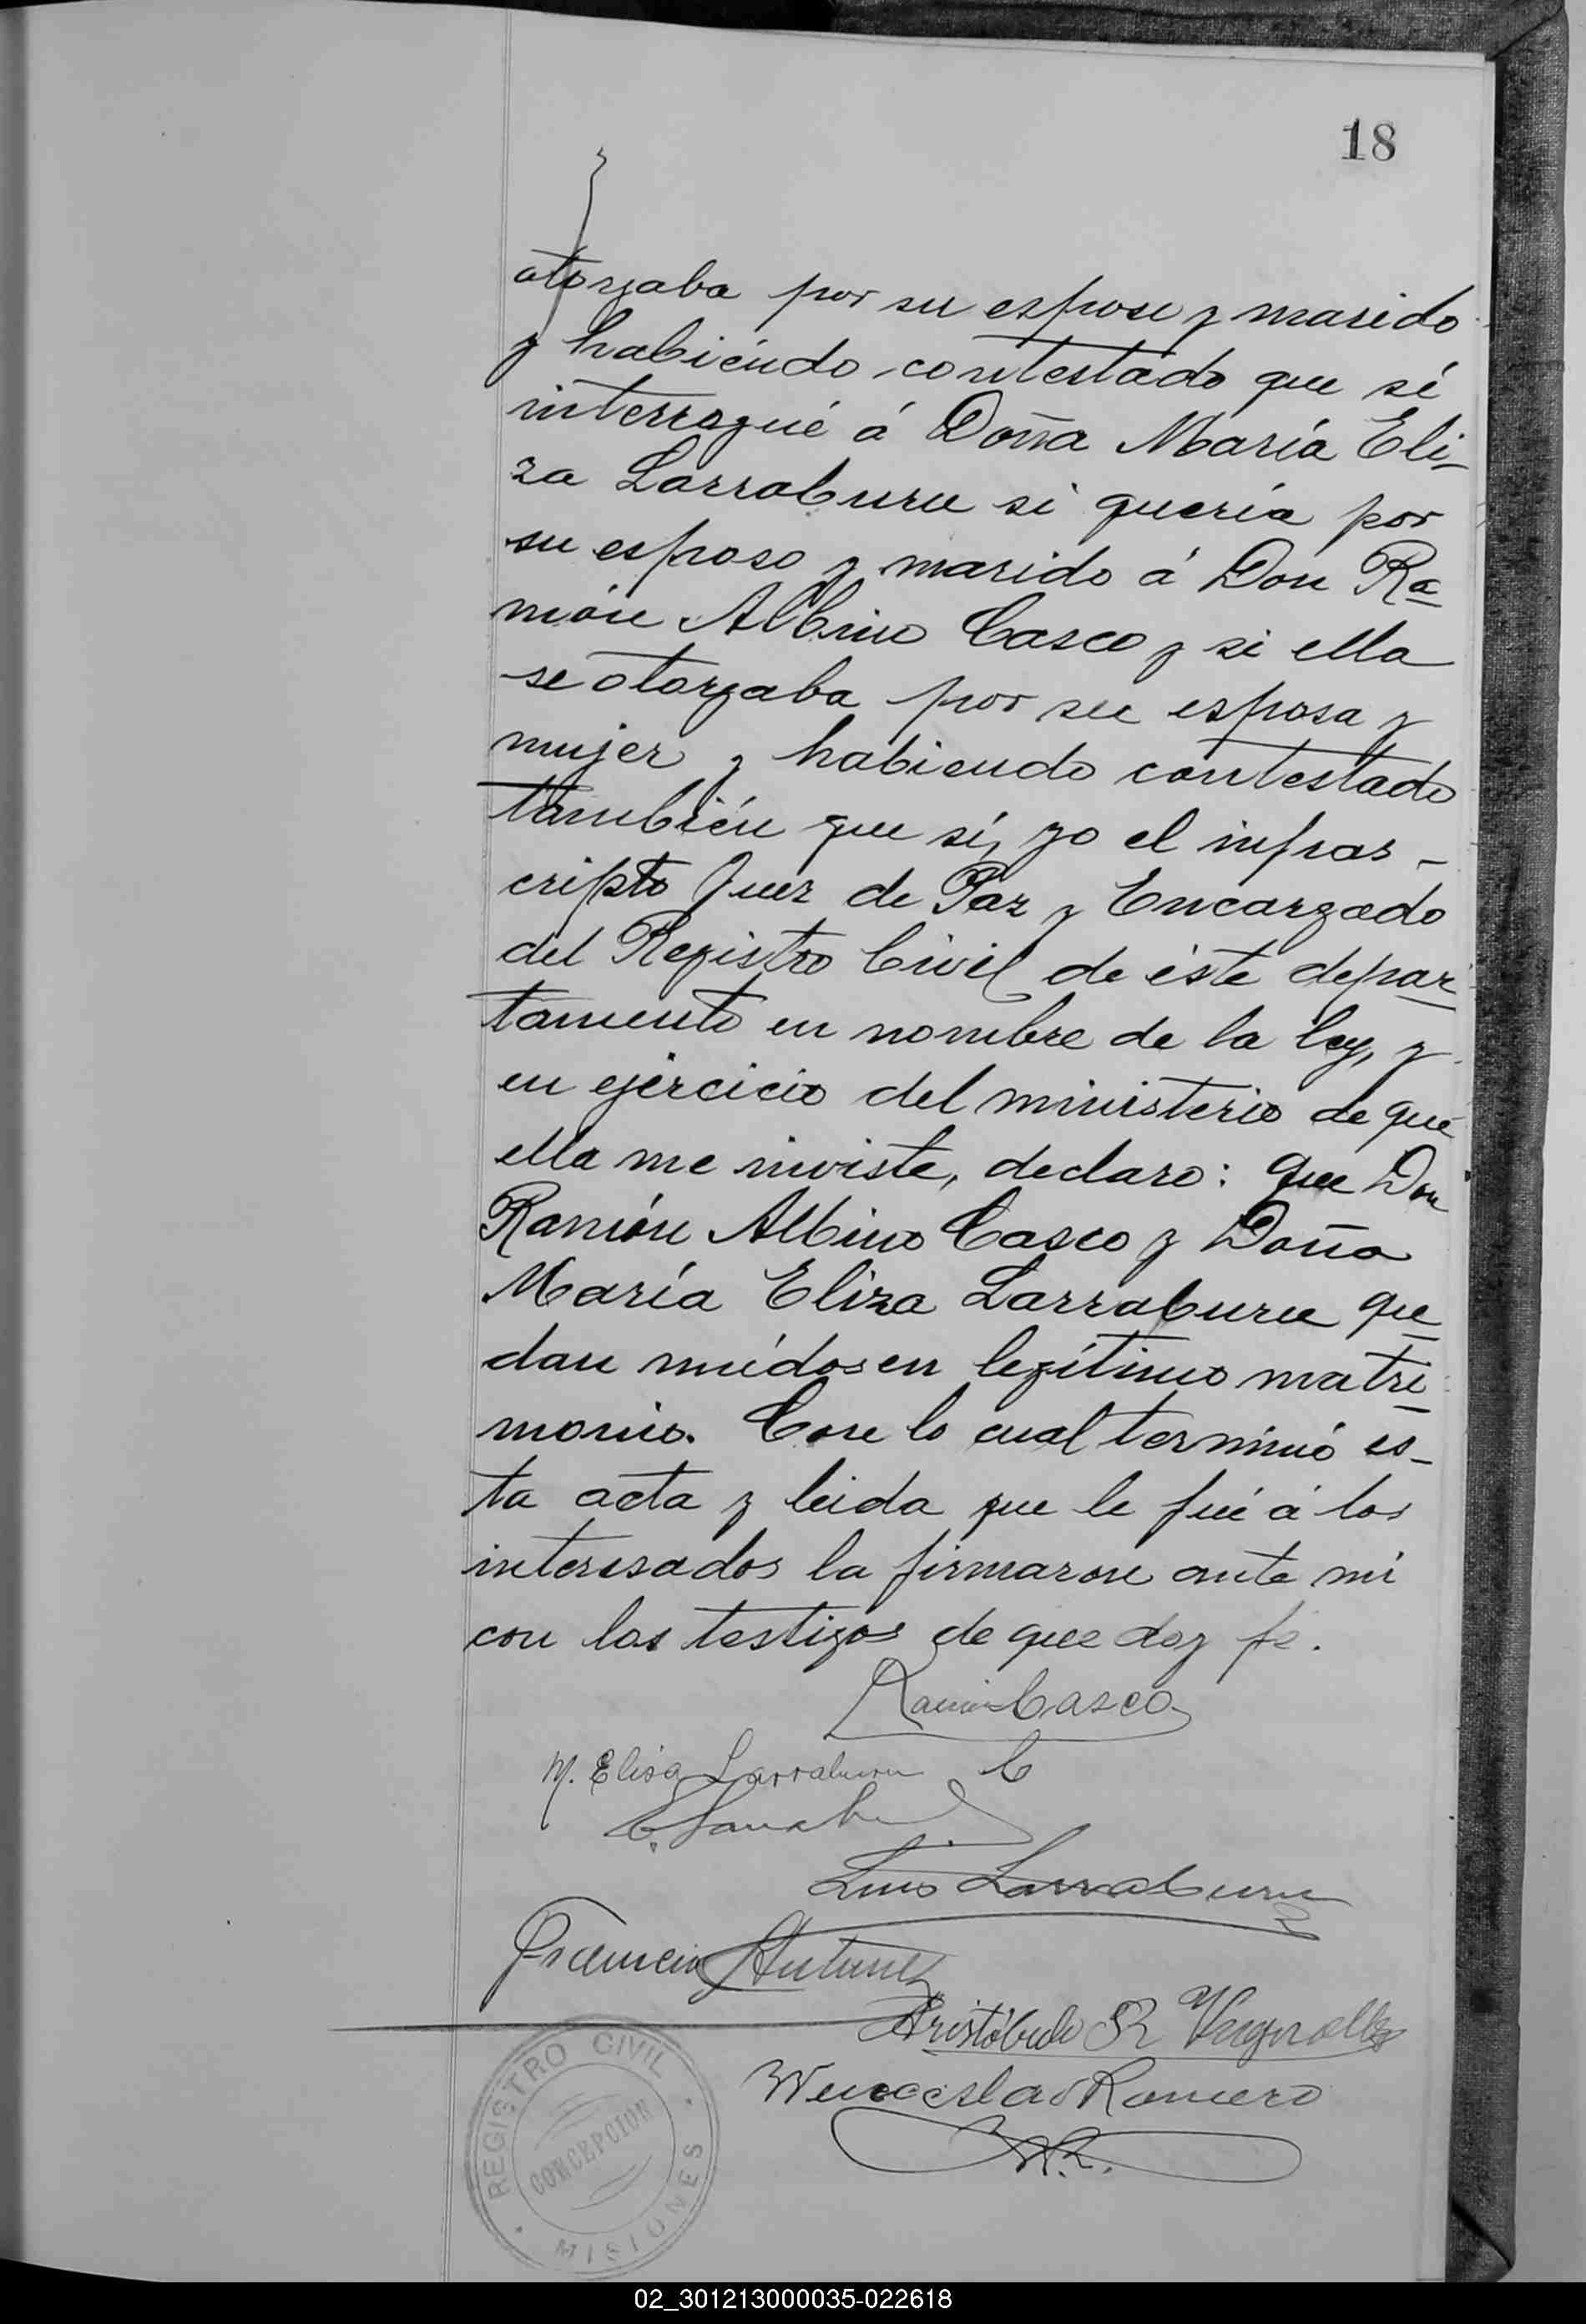 18
otorgaba por su esposo y marido
y habiéndo contestado que sí
interrogué á Doña María Eli-
za Larraburu si quería por
su esposo y marido á Don Ra-
món Albino Casco y si ella
se otorgaba por su esposa y
mujer y habiendo contestado
también que sí, yo el infras-
cripto Juez de Paz y Encargado
del Registro Civil de éste depar-
tamento en nombre de la ley, y
en ejercicio del ministerio de que
ella me inviste, declaro: que Don
Ramón Albino Casco y Doña
María Eliza Larraburu que-
dan unídos en legítimo matri-
monio. Con lo cual terminó es-
ta acta y leida que le fué á los
interesados la firmaron ante mí
con los testigos de que doy fé.
Ramón Casco
M. Elisa Larraburu
Luis Larraburu
Francisco Antunez
Aristóbulo
Wenceslao Romero
W.R.
REGISTRO CIVIL
CONCEPCION
MISIONES
02_301213000035-022618